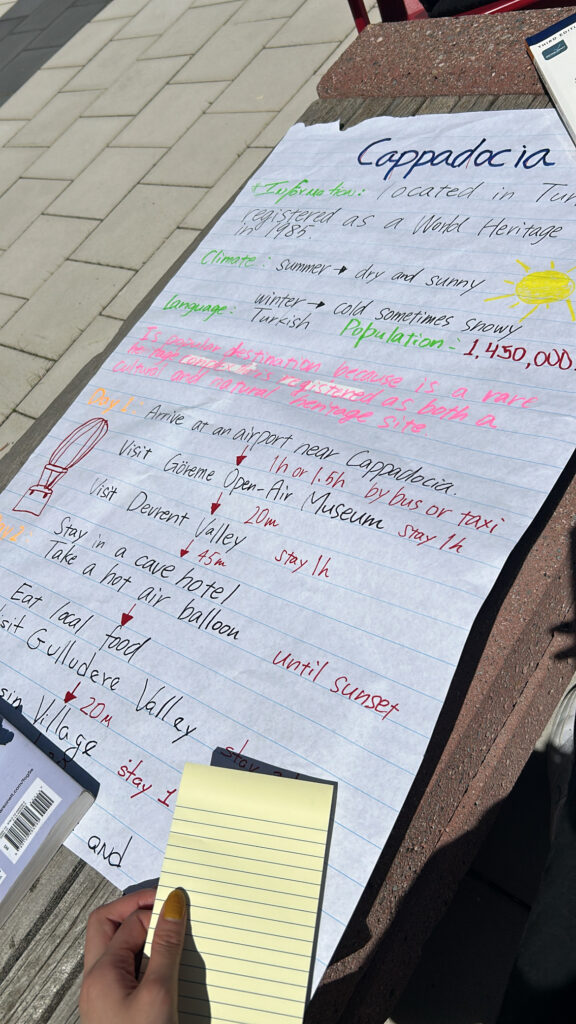 Cappadocia
Information: located in Tur
registered as a World Heritage
in 1985.
Climate: summer → dry and sunny
winter → cold sometimes snowy
Language: Turkish
Population: 1,450,000
Is popular destination because is a rare
heritage is registered as both a
cultural and natural heritage site
Day 1: Arrive at an airport near Cappadocia.
1h or 1.5h by bus or taxi
Visit Göreme Open-Air Museum stay 1h
20m
Visit Devrent Valley stay 1h
45m
Stay in a cave hotel
Take a hot air balloon
Eat local food
until sunset
isit Gulludere Valley
20m
Village
stay 1
and
THIRD EDITI